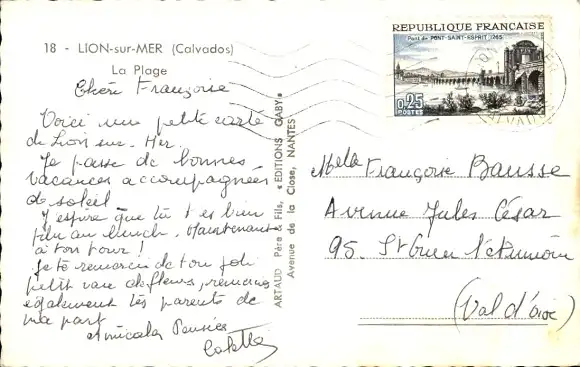 18 - LION-sur-MER (Calvados)
La Plage
Chère Françoise
Voici une petite carte
de Lion sur Mer.
Je passe de bonnes
vacances accompagnées
de soleil
J'espère que tu t'es bien
plu au . Maintenant
à ton tour !
Je te remercie de ton joli
petit vase de fleurs, remercie
également tes parents de
ma part
Amicales Pensées
Colette
ARTAUD Père & Fils, « EDITIONS GABY »
Avenue de la Close, NANTES
REPUBLIQUE FRANÇAISE
Pont de PONT-SAINT-ESPRIT 1265
0,25
POSTES
CALVADOS
Melle Françoise Bausse
Avenue Jules César
95. St Ouen l'Aumône
(Val d'oise)